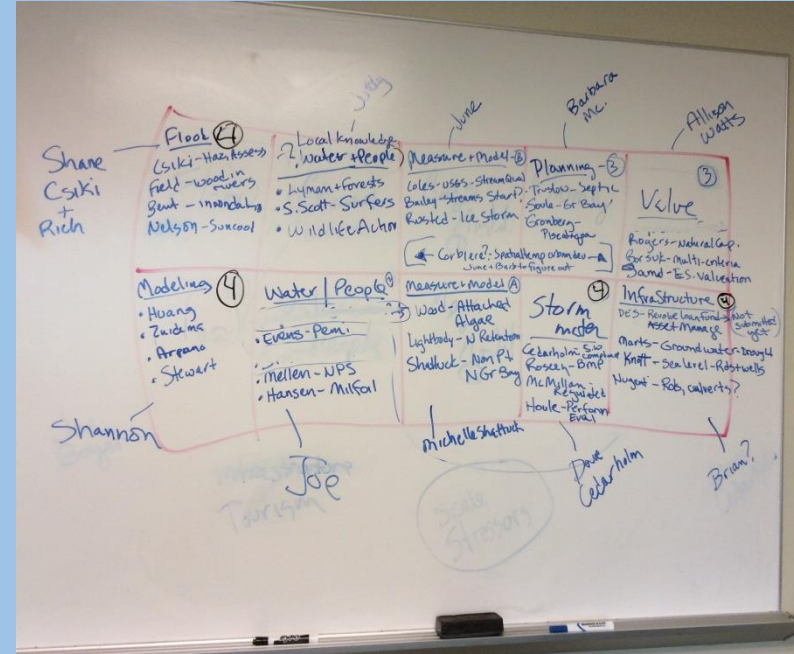 Judy
June
Barbara
Mc.
Allison
Watts
Shane
Csiki
+
Rich
Flood 4
Csiki - Haz Assess
Field - wood in
rivers
- inundation
Nelson - Suncook
Local Knowledge
? Water + People)
• Lyman + Forests
• S. Scott - Surfers
• Wildlife Action
Measure + Model - B
Coles - USGS - Stream Qual
Bailey - streams Start?
Rusted - Ice Storm
Planning - 3
Truslow - Septic
Soule - Gr Bay
Gronberg -
Piscataqua
Corbiere? - Spatial temp urban dev
June + Barb to figure out
3
Value
Rogers - Natural Cap.
Borsuk - multi-criteria
- E.S. Valuation
Modeling 4
• Huang
• Zuidema
• Arpano
• Stewart
Water / People
• Evans - Pemi.
• Mellen - NPS
• Hansen - Milfoil
Measure + model A
Wood - Attached
Algae
Lightbody - N Retention
Shattuck - Non Pt
N Gr Bay
4
Storm
water
Cedarholm -
Roseen - BMP
McMillan -
Houle - Perform
Eval
Infrastructure 4
DES - Revolv loan funds
Asset Manage
(Not
submitted
yet)
Marts - Groundwater - Drought
Knott - Sea level - Rds + wells
Nugent - Rds, culverts?
Shannon
Joe
Michelle Shattuck
Dave
Cedarholm
Brian?
Tourism
Scale
Stressors